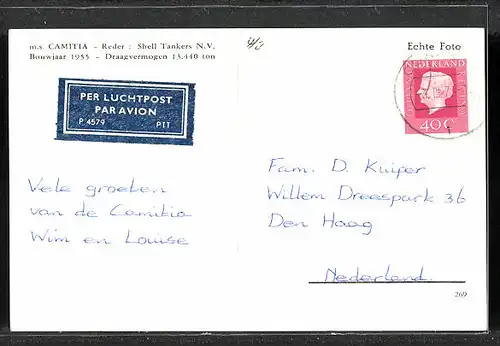 m.s. CAMITIA - Reder : Shell Tankers N.V.
Bouwjaar 1955 - Draagvermogen 13.440 ton
Echte Foto
NEDERLAND
40 C
PER LUCHTPOST
PAR AVION
P 4579 PTT
Vele groeten
van de Camitia
Wim en Louise
Fam. D. Kuiper
Willem Dreespark 36
Den Haag
Nederland.
269